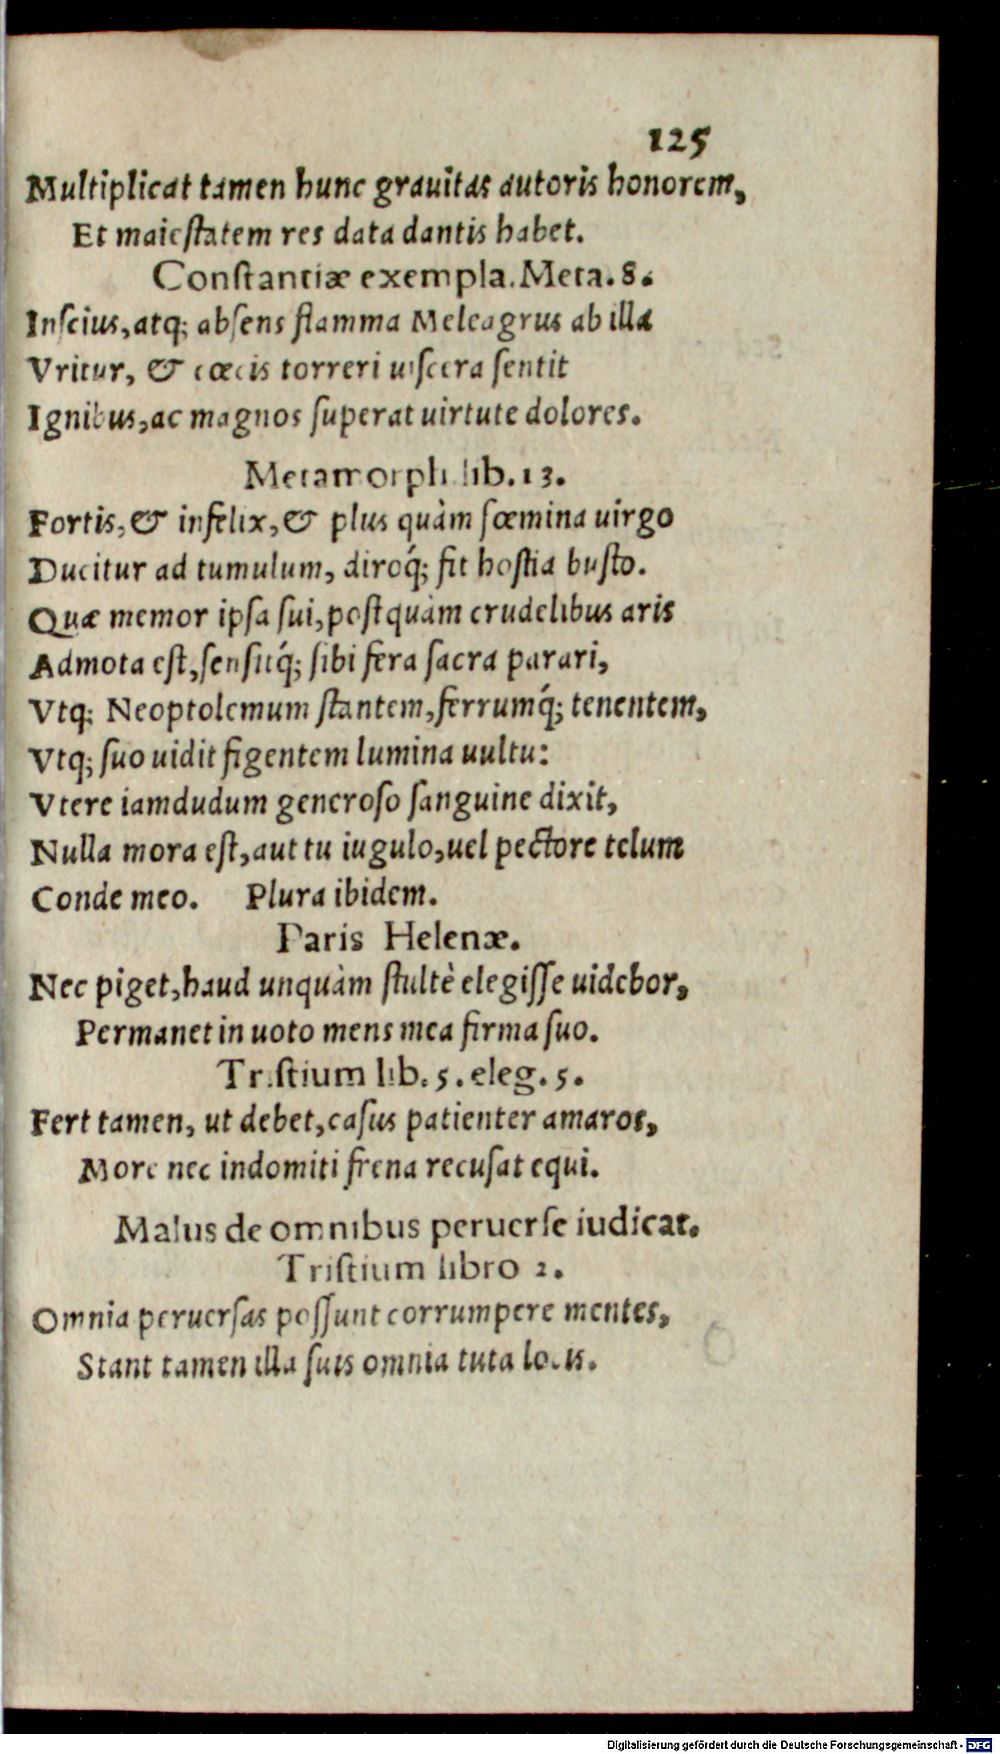 125
Multiplicat tamen hunc grauitas autoris honorem,
Et maiestatem res data dantis habet.
Constantiæ exempla. Meta. 8.
Inscius, atq; absens flamma Meleagrus ab illa
Vritur, & cœcis torreri uiscera sentit
Ignibus, ac magnos superat uirtute dolores.
Metamorph. lib. 13.
Fortis, & infelix, & plus quàm fœmina uirgo
Ducitur ad tumulum, diroq́; fit hostia busto.
Quæ memor ipsa sui, postquàm crudelibus aris
Admota est, sensitq́; sibi fera sacra parari,
Vtq; Neoptolemum stantem, ferrumq́; tenentem,
Vtq; suo uidit figentem lumina uultu:
Vtere iamdudum generoso sanguine dixit,
Nulla mora est, aut tu iugulo, uel pectore telum
Conde meo. Plura ibidem.
Paris Helenæ.
Nec piget, haud unquàm stultè elegisse uidebor,
Permanet in uoto mens mea firma suo.
Tristium lib. 5. eleg. 5.
Fert tamen, ut debet, casus patienter amaros,
More nec indomiti frena recusat equi.
Malus de omnibus peruerse iudicat.
Tristium libro 2.
Omnia peruersas possunt corrumpere mentes,
Stant tamen illa suis omnia tuta locis.
Digitalisierung gefördert durch die Deutsche Forschungsgemeinschaft - DFG